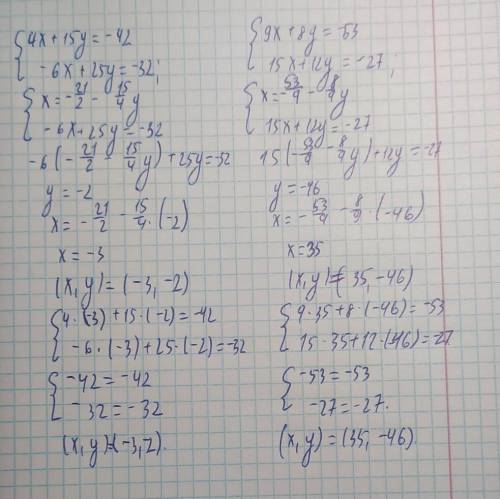 4x+15y=-42
-6x+25y=-32;
x=-21/2-15/4y
-6x+25y=-32
-6(-21/2-15/4y)+25y=-32
y=-2
x=-21/2-15/4·(-2)
x=-3
(x,y)=(-3,-2)
4·(-3)+15·(-2)=-42
-6·(-3)+25·(-2)=-32
-42=-42
-32=-32
(x,y)=(-3,2).
9x+8y=-53
15x+12y=-27;
x=-53/9-8/9y
15x+12y=-27
15(-53/9-8/9y)+12y=-27
y=-46
x=-53/9-8/9·(-46)
x=35
(x,y)=(35,-46)
9·35+8·(-46)=-53
15·35+12·(-46)=-27
-53=-53
-27=-27.
(x,y)=(35,-46)